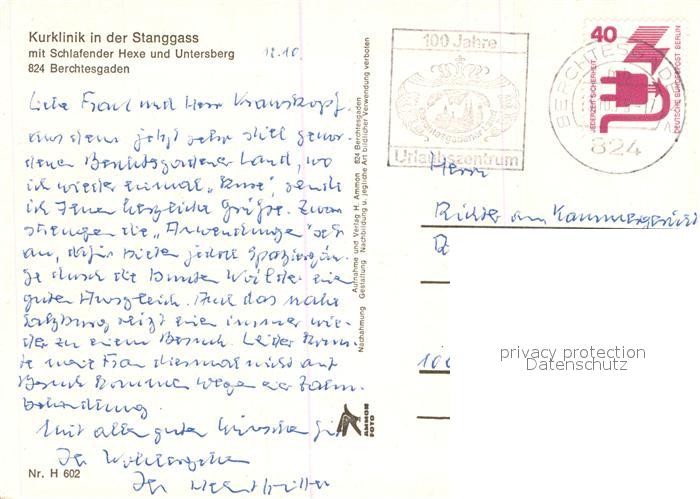 Kurklinik in der Stanggass
mit Schlafender Hexe und Untersberg
824 Berchtesgaden
12.10.
Liebe Frau und Herr Krauskopf.
aus dem jetzt sehr still gewor-
denen Berchtesgadener Land, wo
ich wieder einmal „Kure", sende
ich Ihnen herzliche Grüße. Zwar
strengen die „Anwendungen" sehr
an, dafür bieten jedoch Spaziergän-
ge durch die bunten Wälder einen
guten Ausgleich. Auch das nahe
Salzburg reizt einen immer wie-
der zu einem Besuch. Leider konn-
te meine Frau diesmal nicht auf
Besuch kommen wegen einer Zahn-
behandlung.
Mit allen guten Wünschen für
Ihr Wohlergehen
Ihr
Nr. H 602
Aufnahme und Verlag H. Ammon 824 Berchtesgaden
Nachahmung Gestaltung Nachbildung u. jegliche Art bildlicher Verwendung verboten
AMMON
FOTO
100 Jahre
Berchtesgadener Land
Urlaubszentrum
BERCHTESGADEN
824
40
JEDERZEIT SICHERHEIT
DEUTSCHE BUNDESPOST BERLIN
Herrn
Richter am Kammergericht
privacy protection
Datenschutz